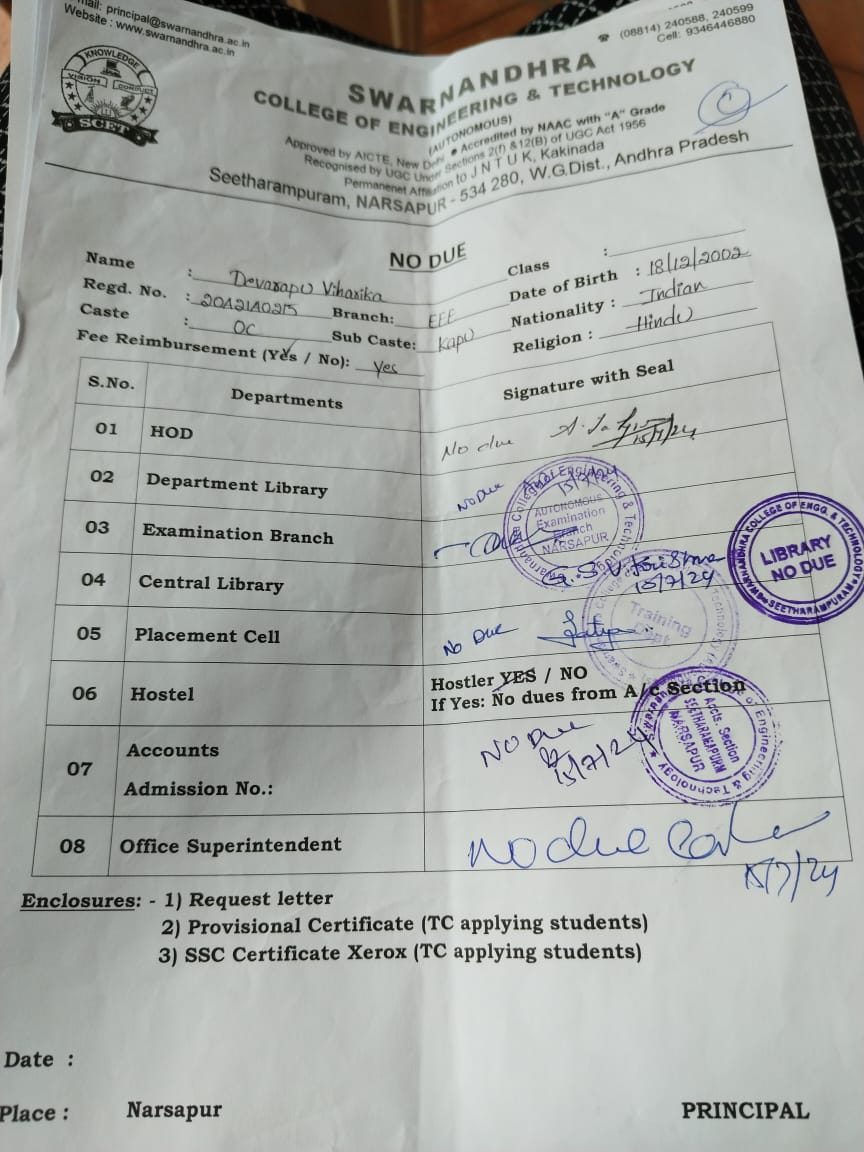 mail: principal@swarnandhra.ac.in
Website : www.swarnandhra.ac.in
(08814) 240588, 240599
Cell: 9346446880
KNOWLEDGE
VISION CONDUCT
SCET
SWARNANDHRA
COLLEGE OF ENGINEERING & TECHNOLOGY
(AUTONOMOUS)
Approved by AICTE, New Delhi • Accredited by NAAC with "A" Grade
Recognised by UGC Under Sections 2(f) &12(B) of UGC Act 1956
Permanenet Affiliation to J N T U K, Kakinada
Seetharampuram, NARSAPUR - 534 280, W.G.Dist., Andhra Pradesh
NO DUE
Name : Devarapu Viharika Class :
Regd. No. : 20A21A0215 Branch: EEE Date of Birth : 18/12/2002
Caste : OC Sub Caste: Kapu Nationality : Indian
Fee Reimbursement (Yes / No): Yes Religion : Hindu
S.No. Departments Signature with Seal
01 HOD No due 15/7/24
02 Department Library No Due 15/7/2024
03 Examination Branch
AUTONOMOUS
Examination
Branch
NARSAPUR
04 Central Library 15/7/24
SWARNANDHRA COLLEGE OF ENGG. & TECHNOLOGY
LIBRARY
NO DUE
SEETHARAMPURAM
05 Placement Cell No Due
Training
Dept
06 Hostel Hostler YES / NO
If Yes: No dues from A/c Section
07 Accounts NO Due
Admission No.: 15/7/24
Swarnandhra College of Engineering & Technology
Accts. Section
SEETHARAMAPURM
NARSAPUR
08 Office Superintendent No due
15/7/24
Enclosures: - 1) Request letter
2) Provisional Certificate (TC applying students)
3) SSC Certificate Xerox (TC applying students)
Date :
Place : Narsapur PRINCIPAL